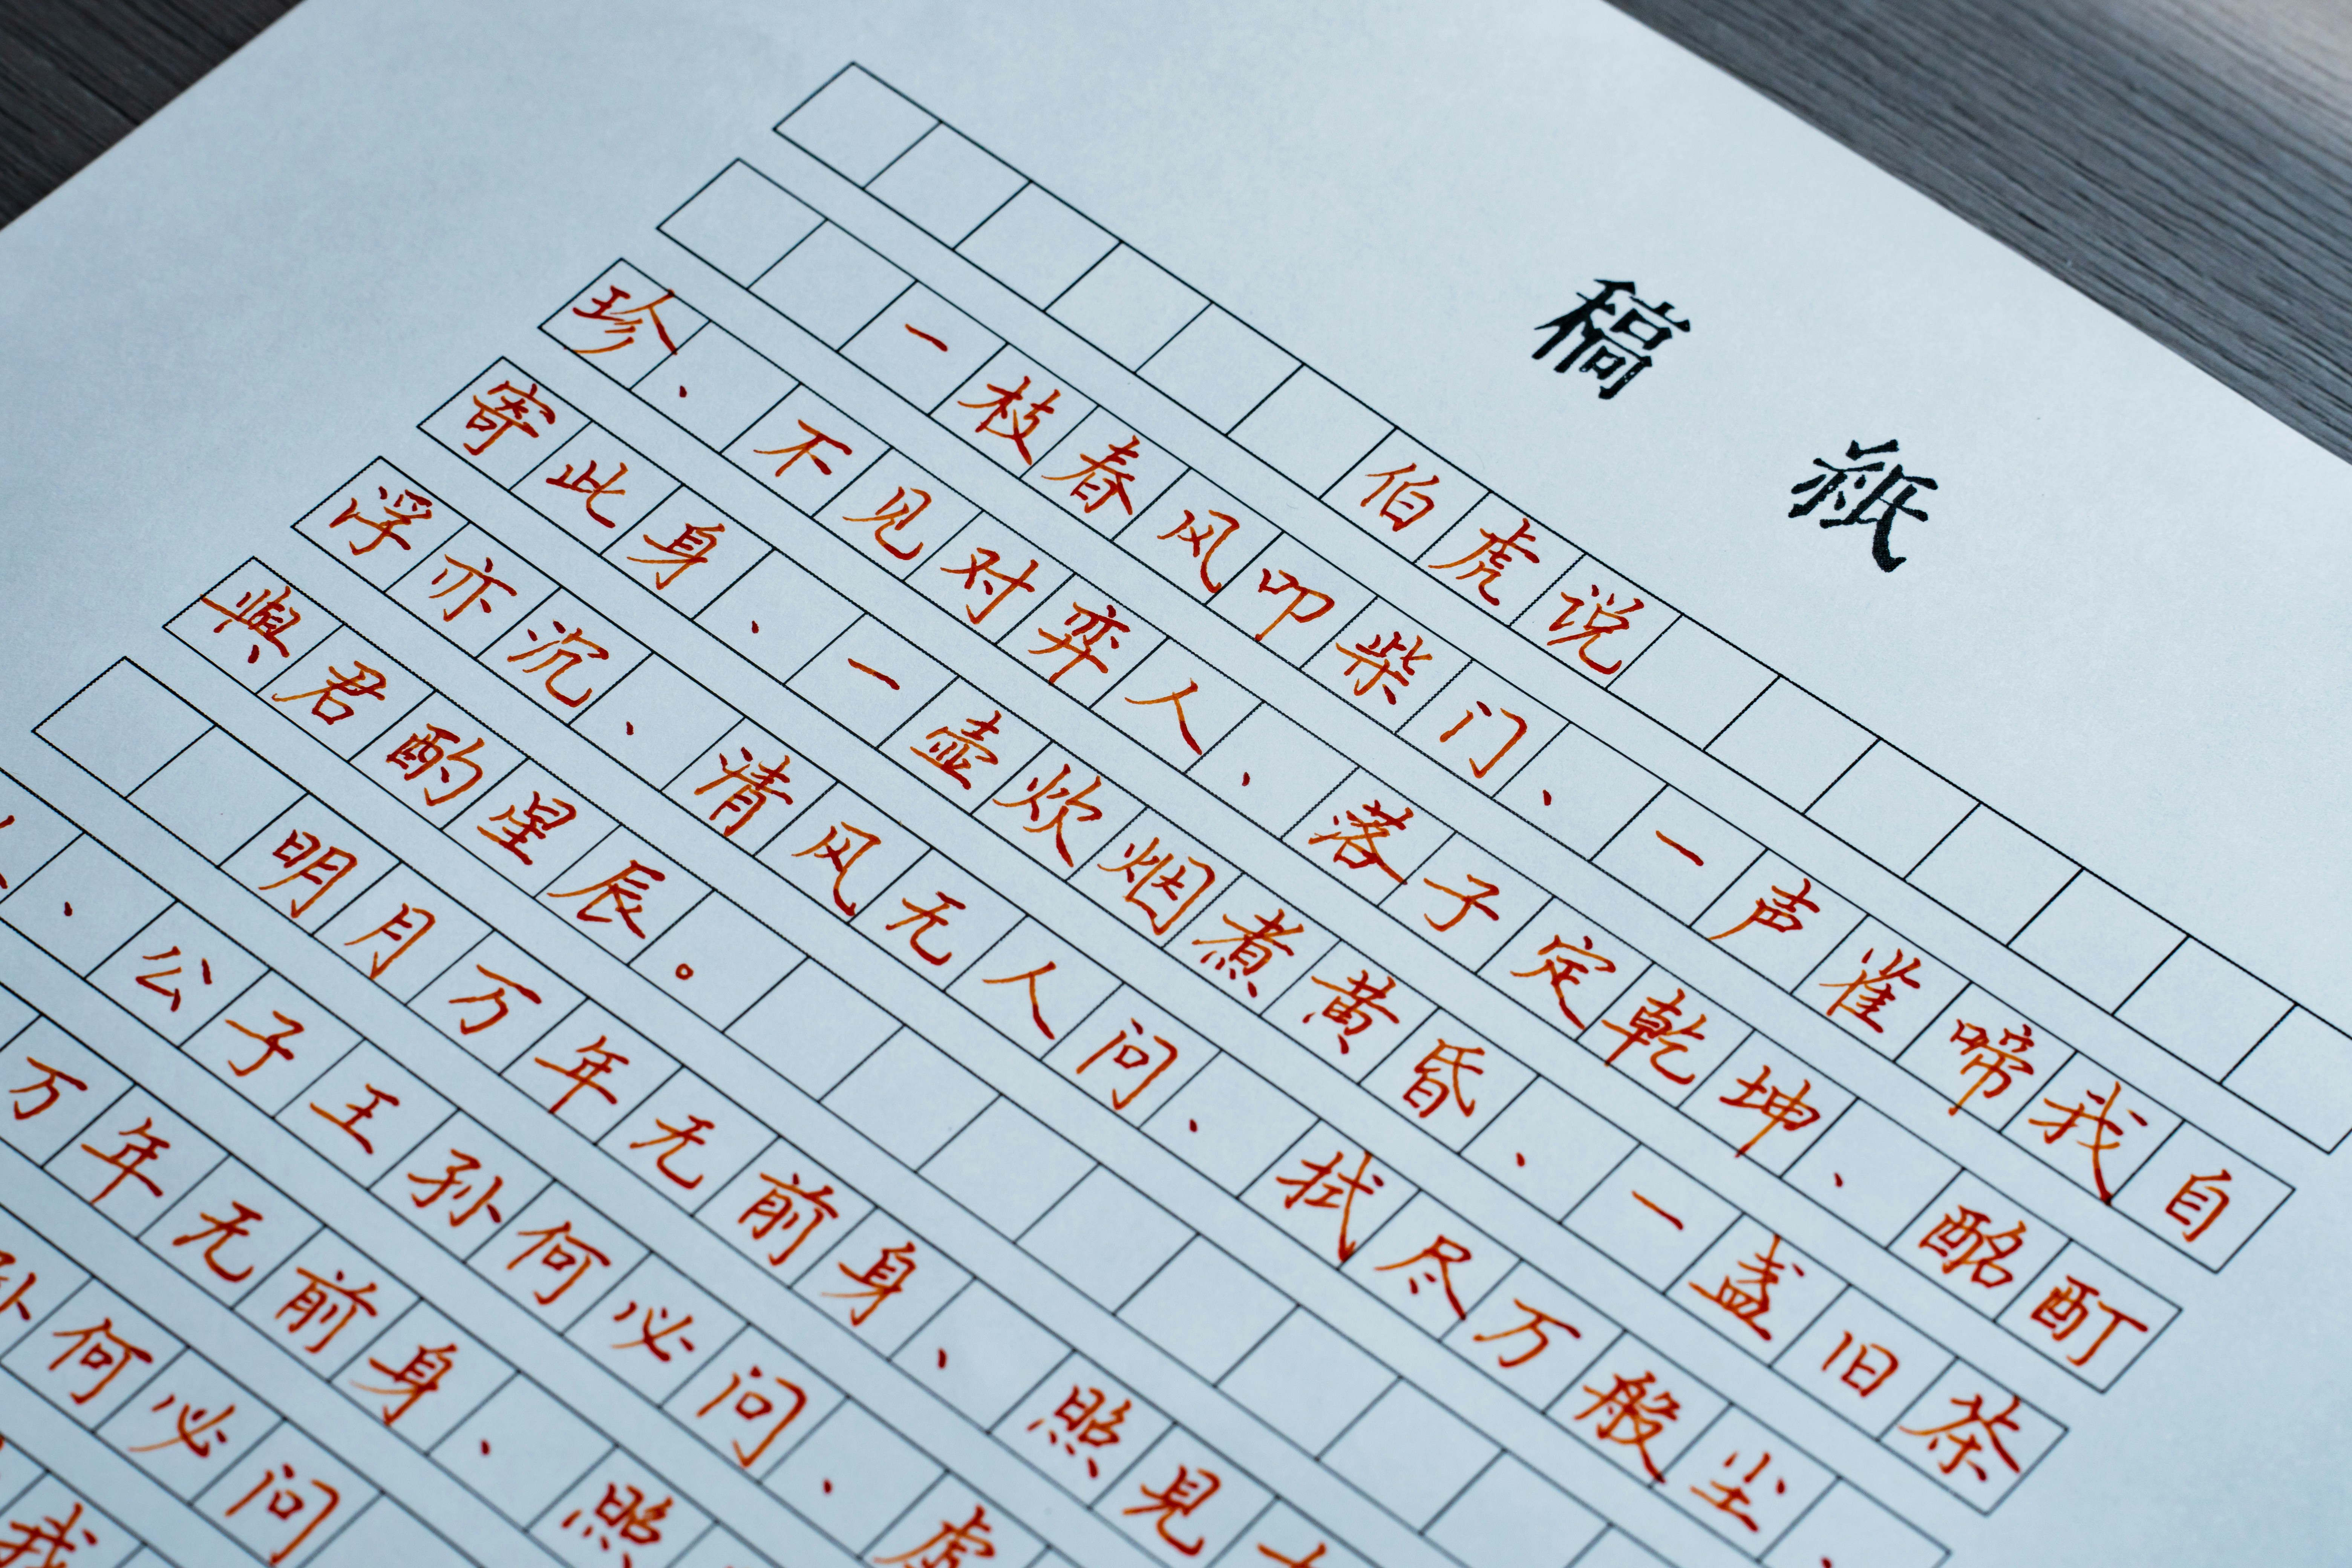 稿紙
伯虎说
一枝春风叩柴门、一声雀啼我自
珍、不见对弈人、落子定乾坤、酩酊
寄此身、一壶炊烟煮黄昏、一盏旧茶
浮亦沉、清风无人问、拭尽万般尘、
與君酌星辰。
明月万年无前身、照見
、公子王孙何必问、虚
万年无前身、照
孙何必问
我